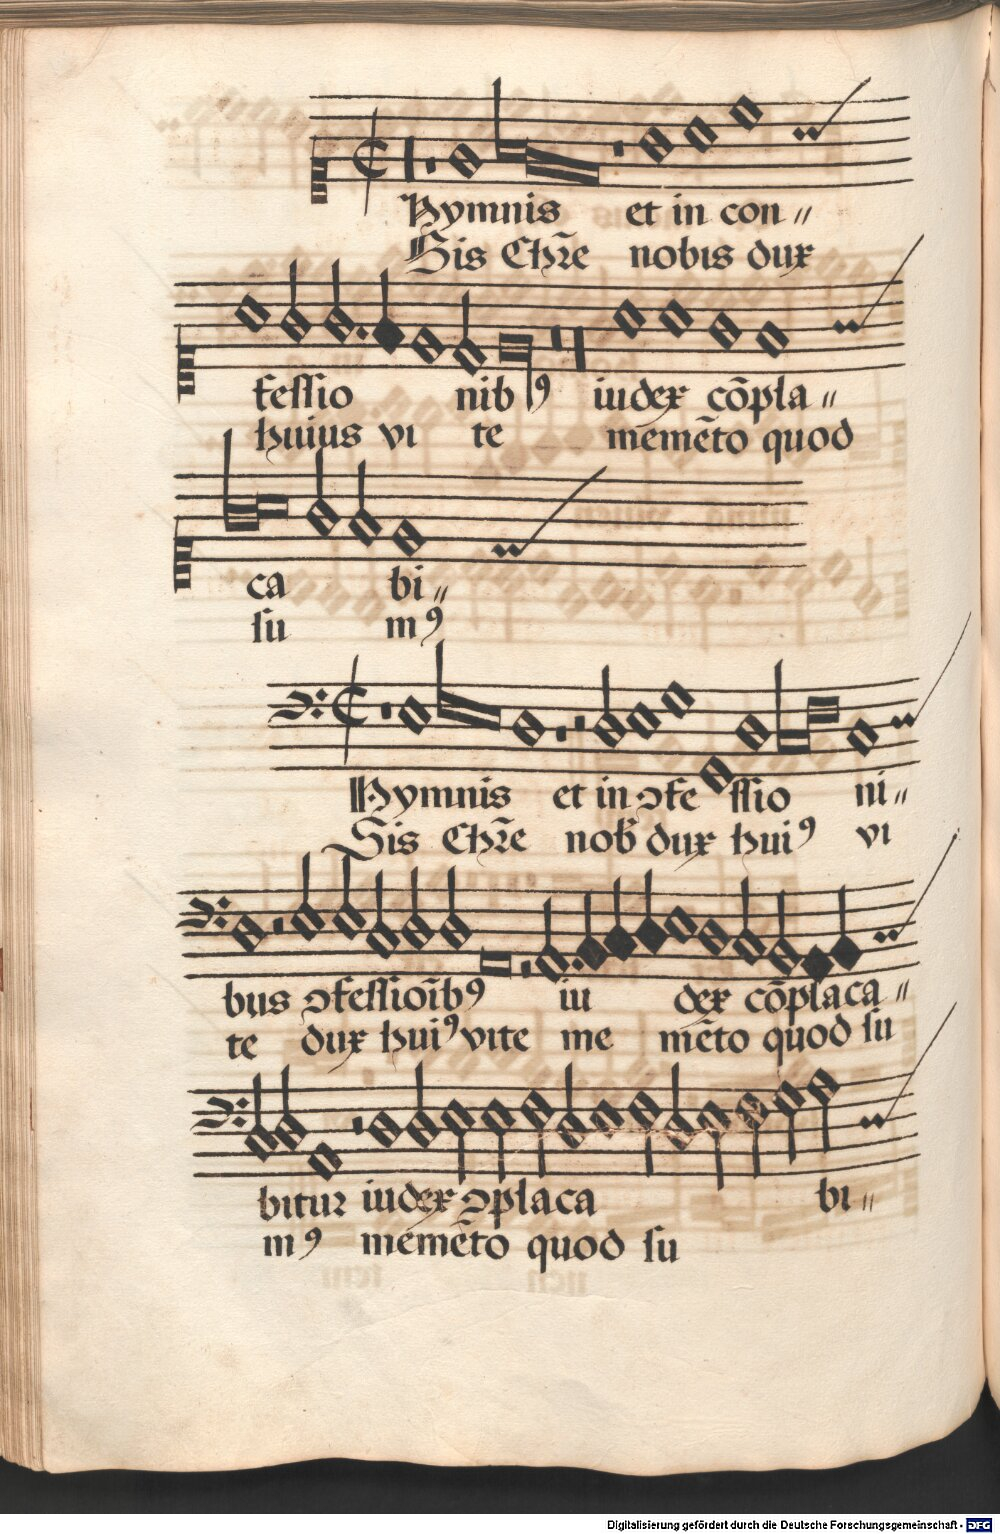 Hymnis et in con〃
Sis Chr̄e nobis dux
fessio nibꝰ iudex cōpla〃
huius vi te memēto quod
ca bi〃
su mꝰ
Hymnis et in ↄfe ssio ni〃
Sis Chr̄e nob̄ dux huiꝰ vi
bus ↄfessioībꝰ iu dex cōplaca〃
te dux huiꝰ vite me mēto quod su
bitur iudex ↄplaca bi〃
mꝰ memēto quod su
Digitalisierung gefördert durch die Deutsche Forschungsgemeinschaft - DFG